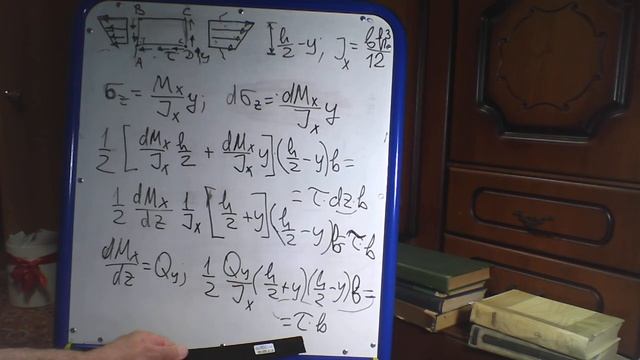 B C
h/2 - y; J_x = bh³/12
A τ D y
σ_z = M_x/J_x y; dσ_z = dM_x/J_x y
1/2 [ dM_x/J_x h/2 + dM_x/J_x y ] (h/2 - y) b =
= τ · dz · b
1/2 dM_x/dz 1/J_x [ h/2 + y ] (h/2 - y) b τ · b
dM_x/dz = Q_y; 1/2 Q_y/J_x (h/2 + y) (h/2 - y) b =
= τ · b